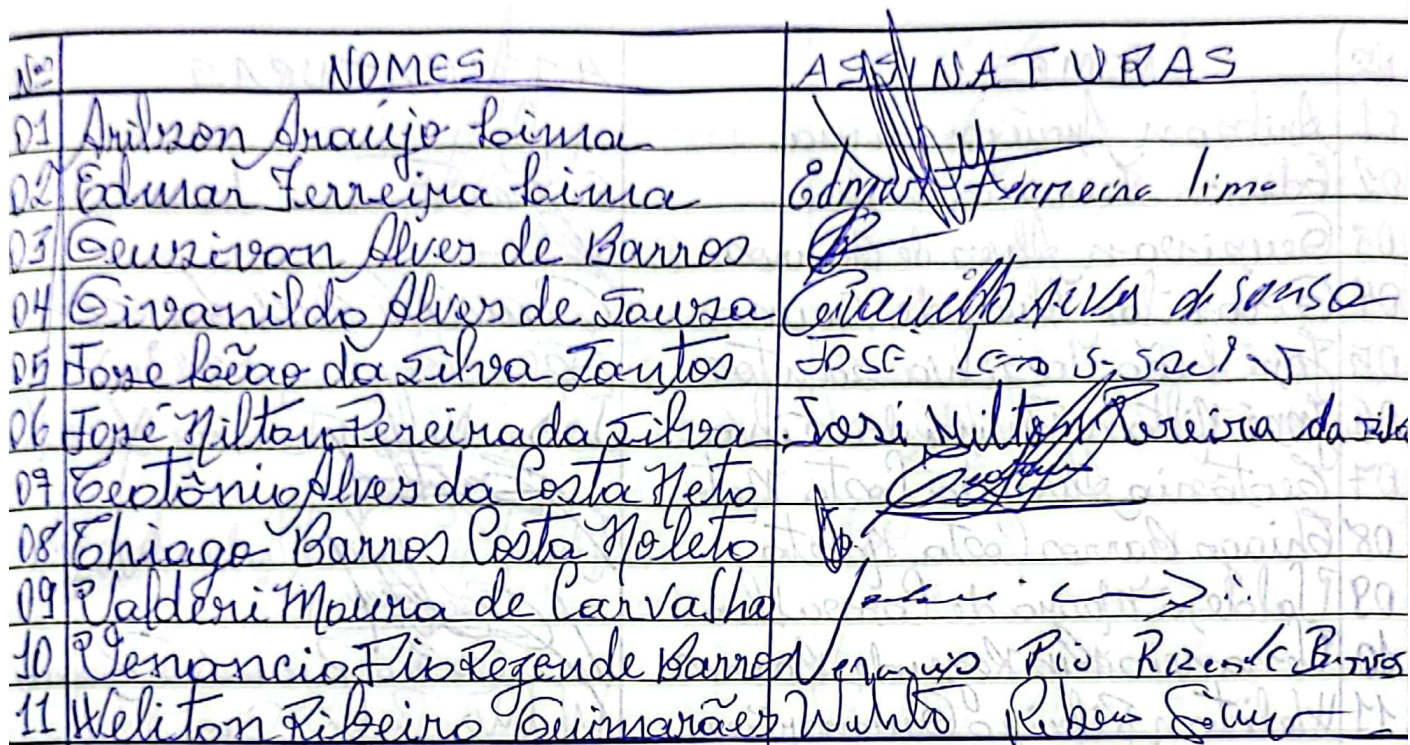 Nº NOMES ASSINATURAS
01 Arilson Araújo Lima
02 Edmar Ferreira Lima Edmar Ferreira lima
03 Geuzivan Alves de Barros
04 Givanildo Alves de Souza Givanildo Alves de Sousa
05 José Leão da Silva Santos José Leão S. S
06 José Nilton Pereira da Silva José Nilton Pereira da Silva
07 Teotônio Alves da Costa Neto
08 Thiago Barros Costa Noleto
09 Valderi Moura de Carvalho
10 Venancio Pio Rezende Barros Venancio Pio Rezende Barros
11 Weliton Ribeiro Guimarães Wilito Ribeiro